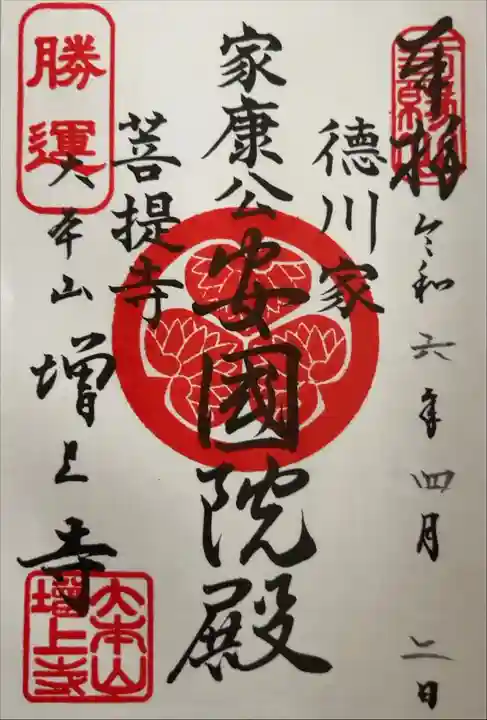 奉拝
令和六年四月二日
徳川家
家康公安國院殿
菩提寺
勝運
大本山増上寺
大本山
増上寺